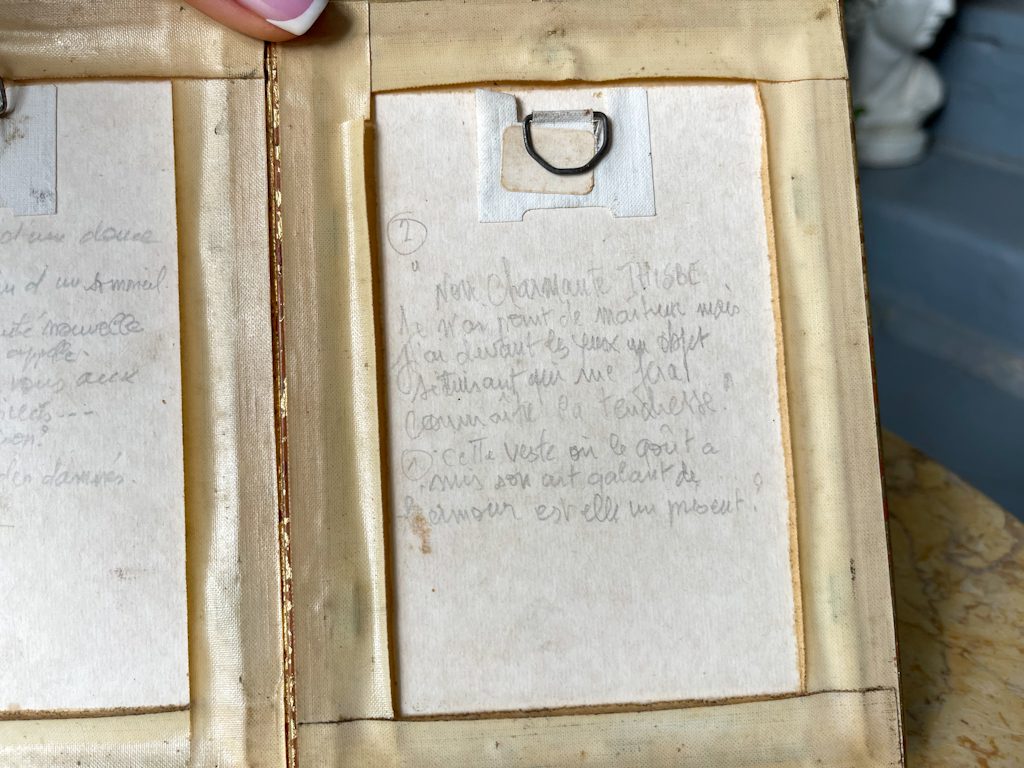 d'une douce
d'un sommeil.
nouvelle
appelle.
vous aux
---
?
des damnés.
②
" Non Charmante THISBE
Je n'ai point de mais
J'ai devant les yeux un objet
Seduisant qui me fera
connaître la tendresse.
① "Cette veste où le goût a
mis son art galant de
l'amour est elle un present ?